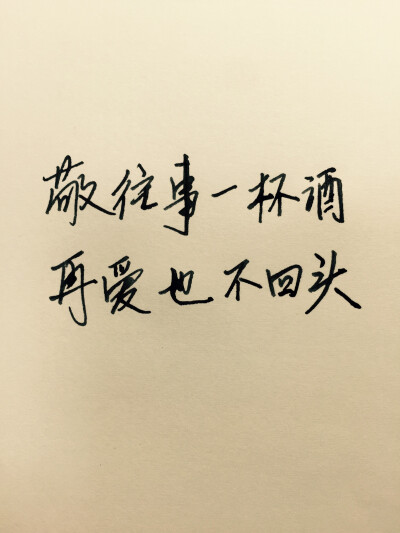 敬往事一杯酒
再爱也不回头